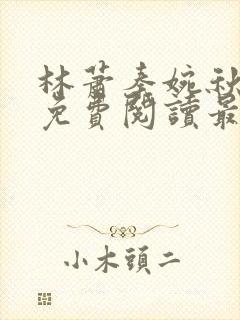 林蕭秦婉秋
免費閱讀最
小木頭二